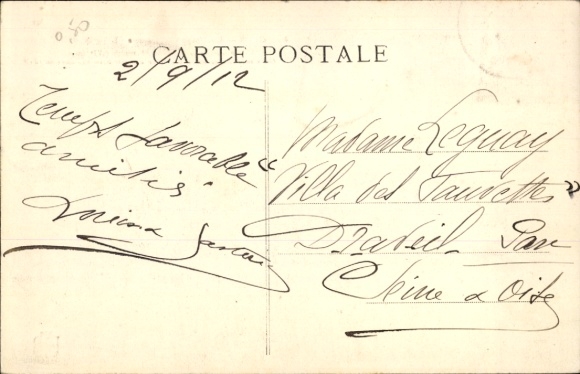 0,50
CARTE POSTALE
2/9/12
Temps favorable
amitiés
Madame Leguay
"Villa des Fauvettes"
Draveil Par
Seine & Oise